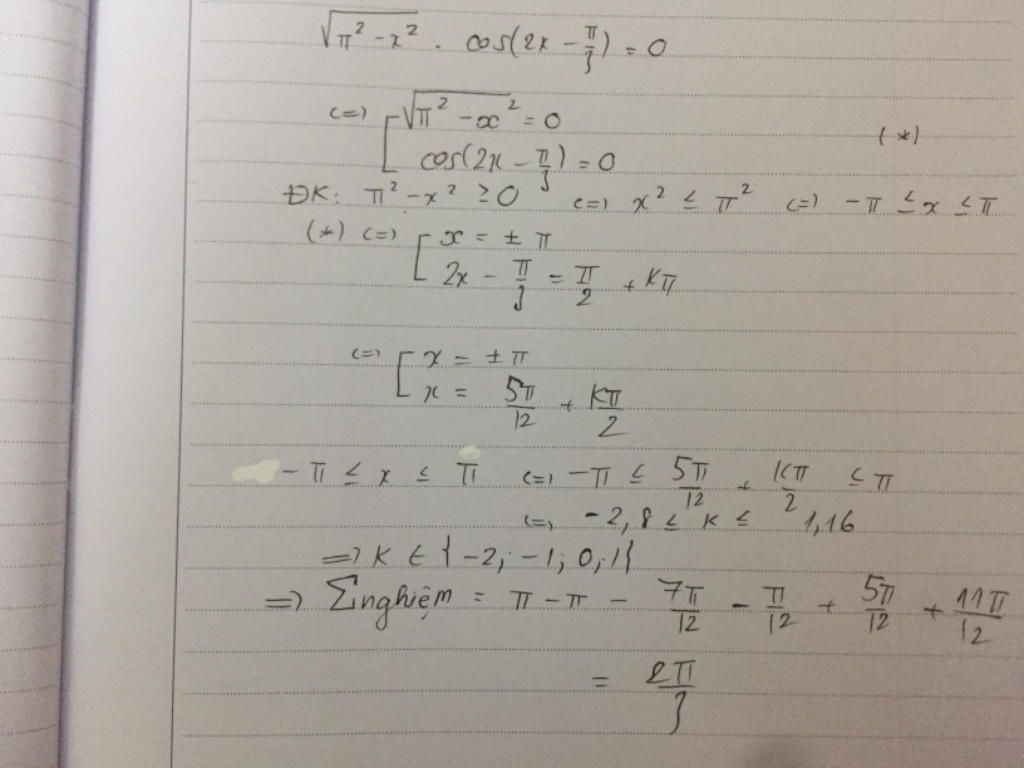 √(π² - x²) . cos(2x - π/3) = 0
<=> [ √(π² - x²) = 0
cos(2x - π/3) = 0 (*)
ĐK: π² - x² ≥ 0 <=> x² ≤ π² <=> -π ≤ x ≤ π
(*) <=> [ x = ± π
2x - π/3 = π/2 + kπ
<=> [ x = ± π
x = 5π/12 + kπ/2
-π ≤ x ≤ π <=> -π ≤ 5π/12 + kπ/2 ≤ π
<=> -2,8 ≤ k ≤ 1,16
=> k ∈ {-2; -1; 0; 1}
=> Σnghiệm = π - π - 7π/12 - π/12 + 5π/12 + 11π/12
= 2π/3